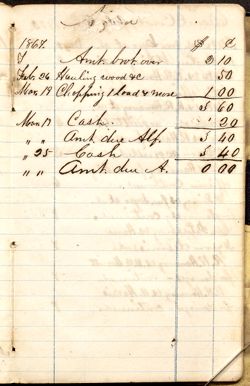 1867. $ ¢
Amt. brot over 2 10
Feb. 26 Hauling wood &c 50
Mar. 18 Chopping 1 load & more 1 00
3 60
Mar. 19 Cash 20
" " Amt. due Alf. 3 40
" 25 Cash 3 40
" " Amt. due A. 0 00